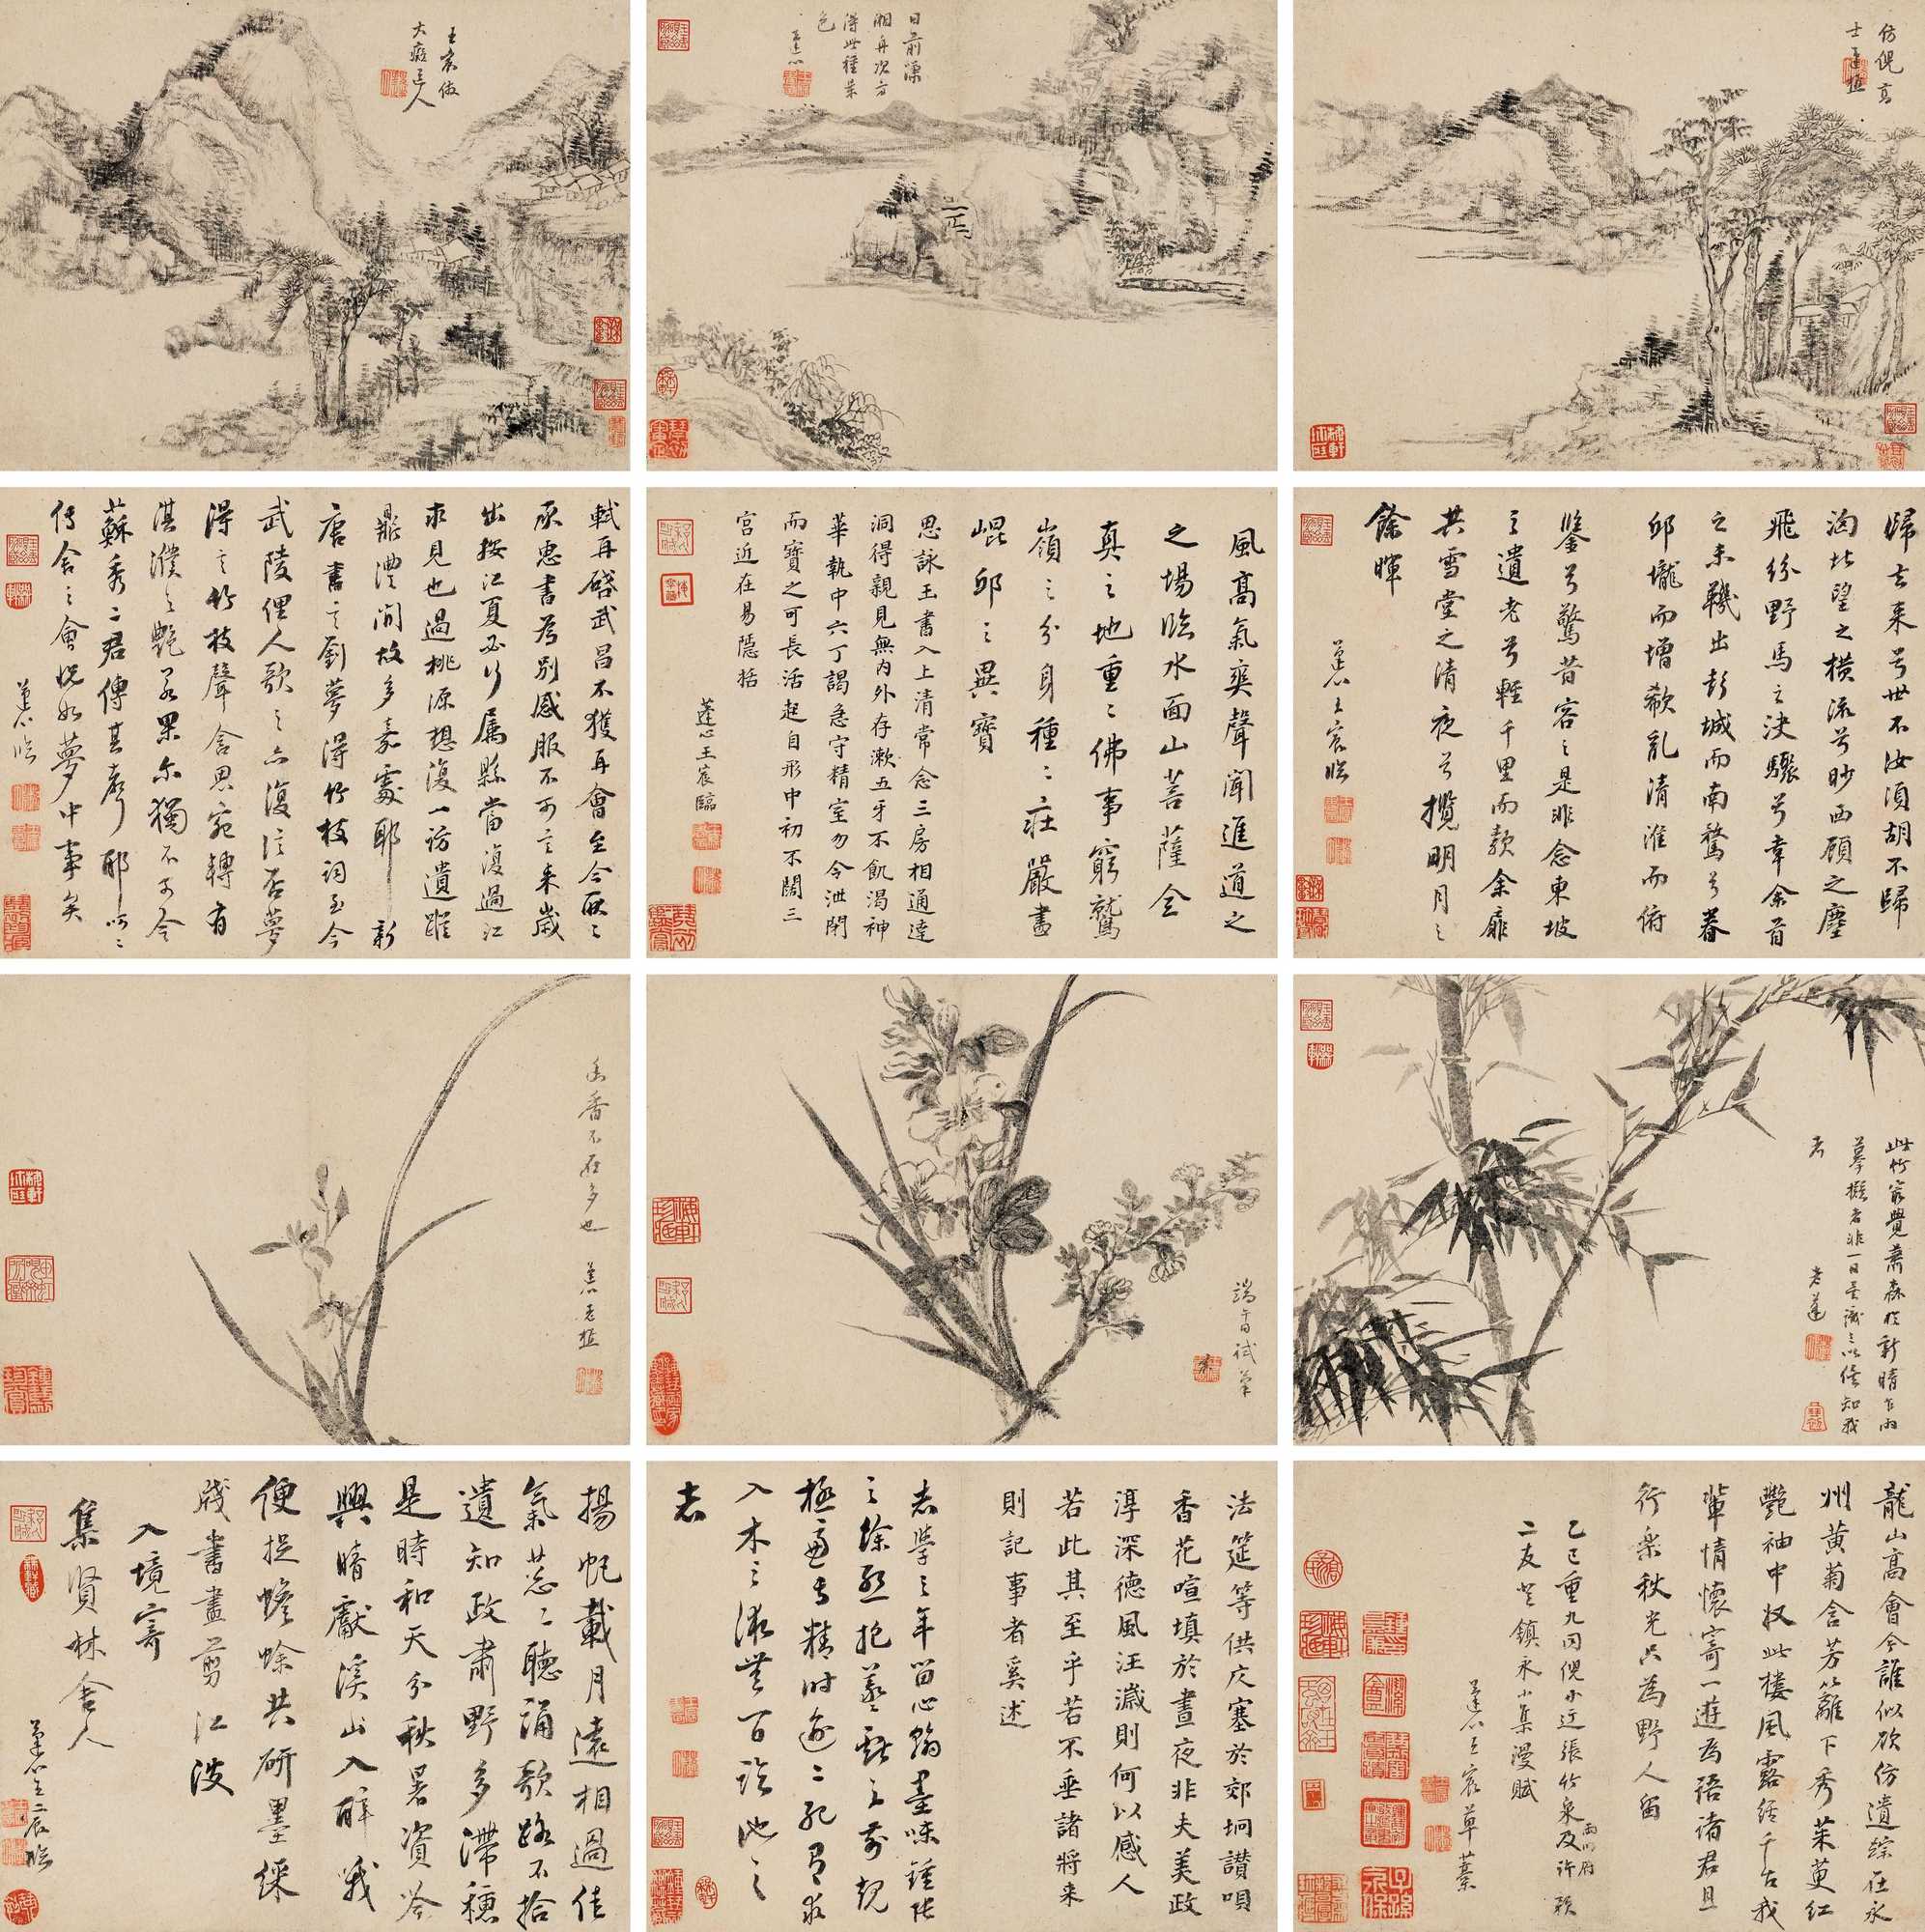 仿倪高
士蓬樵
日前㵎
湘舟次方
得此種景
色
蓬心
王宸倣
大癡道人
歸去來兮世不汝須胡不歸
洶北望之橫流兮眇西顧之塵
飛紛野馬之決驟兮幸余首
之未鞿出彭城而南騖兮眷
邱壠而增欷亂清淮而俯
鑒兮驚昔容之是非念東坡
之遺老兮輕千里而款余扉
共雪堂之清夜兮攬明月之
餘暉
蓬心王宸臨
風高氣爽聲聞進道之
之場臨水面山菩薩全
真之地重重佛事窮鷲
嶺之分身種種莊嚴盡
崐邱之異寶
思詠玉書入上清常念三房相通達
洞得親見無內外存漱五牙不飢渴神
華執中六丁謁急守精室勿令泄閉
而寶之可長活起自形中初不闊三
宮近在易隱括
蓬心王宸臨
軾再啓武昌不獲再會至今厭厭
承惠書為別感服不可言來歲
出按江夏必行屬縣當復過江
求見也過桃源想復一訪遺蹤
鼎澧間故多嘉處耶新
唐書言劉夢得竹枝詞至今
武陵俚人歌之亦復信否夢
得言竹枝聲含思宛轉有
淇濮之艷若果爾獨不可令
蘇秀二君傳其聲耶呵呵
傳舍之會況如夢中事矣
蓬心臨
此竹最覺蕭森於新晴乍雨
摹擬者非一日矣識之以俟知我
者
老蓬
端午日試筆
幽香不在多也
蓬心老樵
龍山高會今誰似欲仿遺踪在永
州黃菊含芳籬下秀茱萸紅
艷袖中收此樓風露經千古我
輩情懷寄一遊為語諸君且
行樂秋光只為野人留
乙巳重九同倪小迂張竹泉及許
兩明府
二友登鎮永小集漫賦
蓬心王宸草藁
法筵等供庆塞於郊坰讃唄
香花喧填於晝夜非夫美政
淳深德風汪濊則何以感人
若此其至乎若不垂諸將來
則記事者奚述
志學之年留心翰墨味鍾張
之餘烈挹羲獻之前規
極慮專精時逾二紀有乖
入木之術無間臨池之
志
揚帆載月遠相過佳
氣葱葱聽誦歌路不拾
遺知政肅野多滯穗
是時和天分秋暑資吟
興晴獻溪山入醉哦
便捉蟾蜍共研墨綵
牋書盡剪江波
入境寄
集賢林舍人
蓬心王宸臨